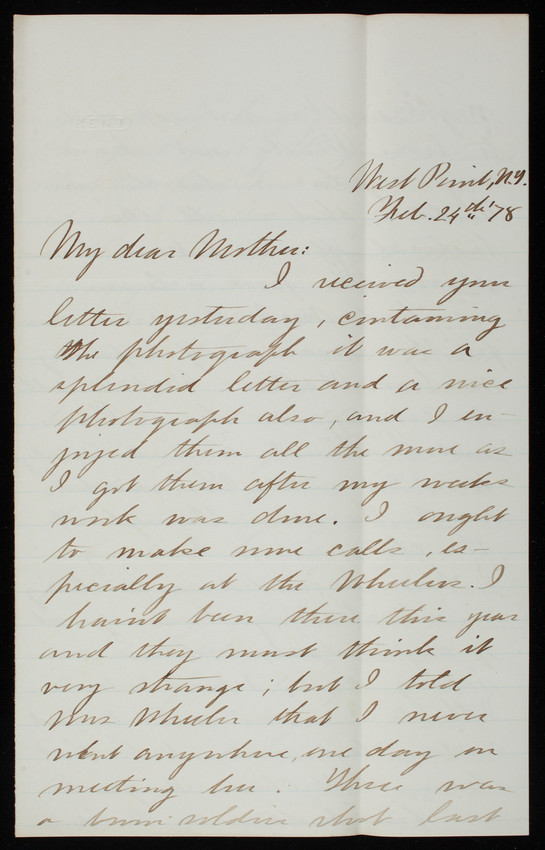 West Point, N.Y.
Feb. 24th '78
My dear Mother:
I received your
letter yesterday, containing
the photograph it was a
splendid letter and a nice
photograph also, and I en-
joyed them all the more as
I got them after my weeks
work was done. I ought
to make more calls, es-
pecially at the Wheelers. I
haint been there this year
and they must think it
very strange; but I told
Mrs Wheeler that I never
went anywhere, one day on
meeting her. There was
a soldier shot last